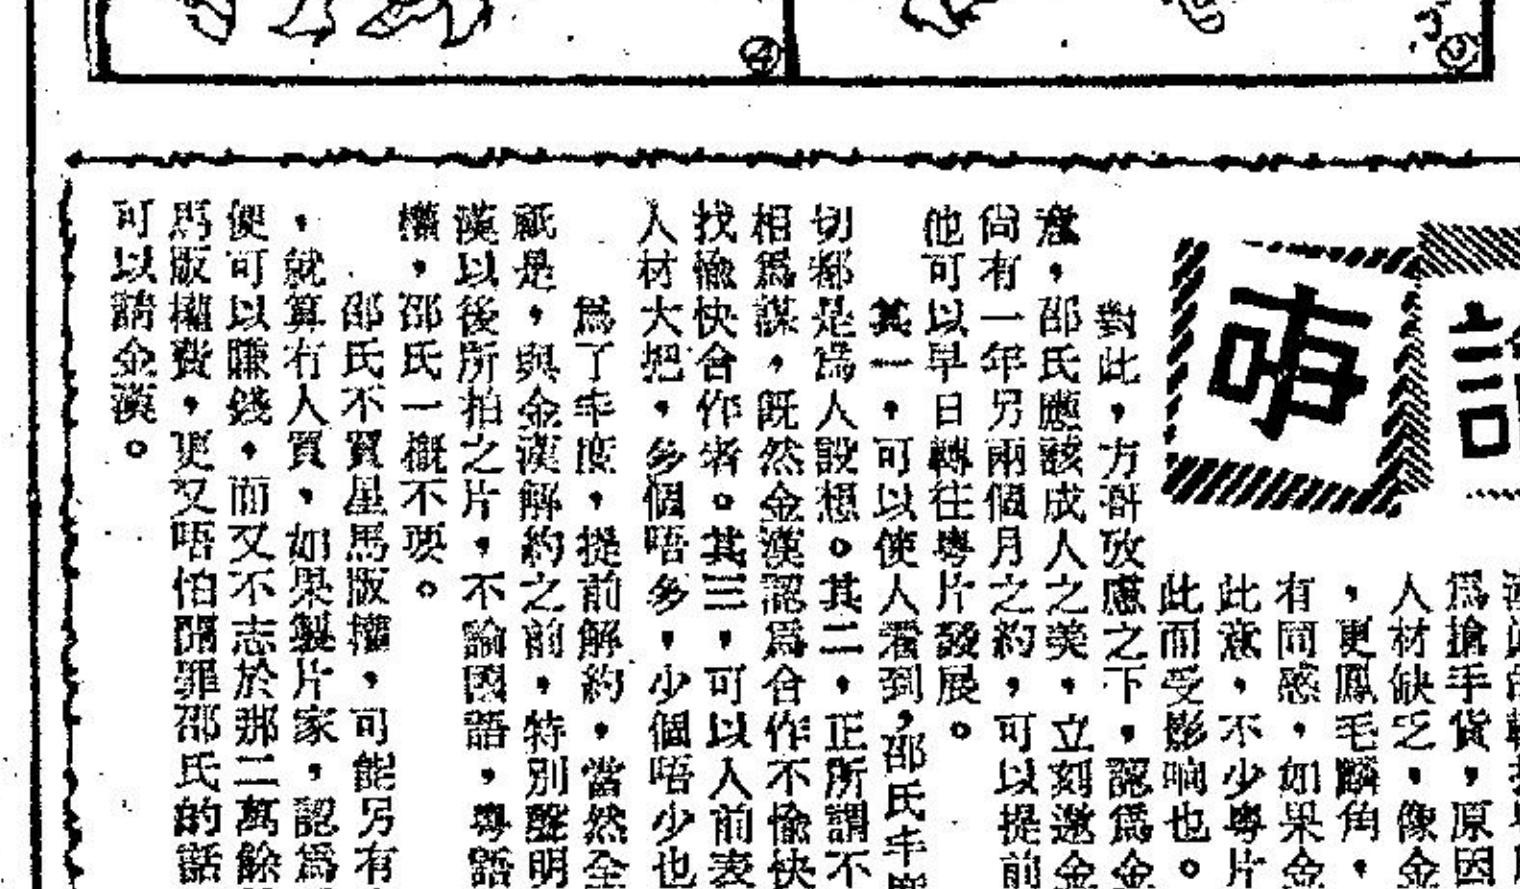 ④
爲搶手貨，原因
人材缺乏，像金
，更鳳毛麟角，
有同感，如果金
此意，不少粤片
此而受影响也。
對此，方群攷慮之下，認爲金
意，邵氏應該成人之美，立刻邀金
尙有一年另兩個月之約，可以提前
他可以早日轉往粤片發展。
其一，可以使人看到，邵氏丰度
切都是爲人設想。其二，正所謂不
相爲謀，旣然金漢認爲合作不愉快
找愉快合作者。其三，可以人前表
人材大把，多個唔多，少個唔少也
爲了丰度，提前解約，當然全
祇是，與金漢解約之前，特別聲明
漢以後所拍之片，不論國語，粤語
權，邵氏一槪不要。
邵氏不買星馬版權，可能另有
，就算冇人買，如果製片家，認爲
便可以賺錢，而又不志於那二萬餘
馬版權費，更又唔怕開罪邵氏的話
可以請金漢。